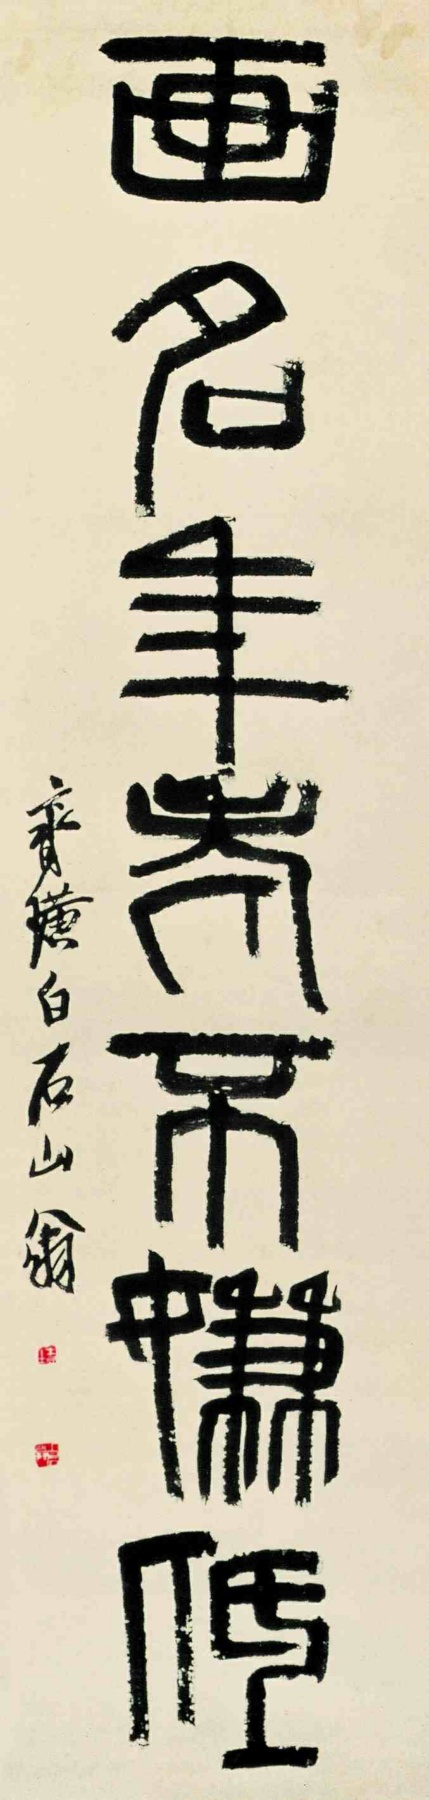 画名年老不嫌低
齊璜白石山翁